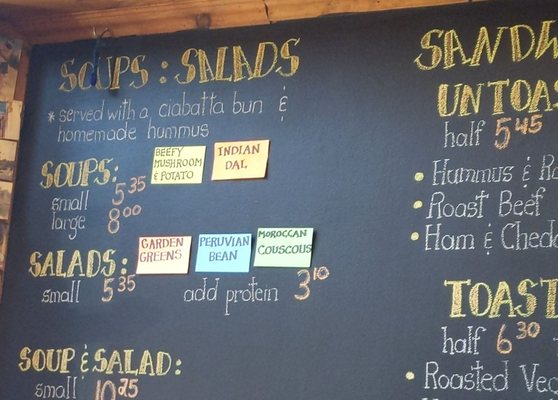 SOUPS & SALADS
* served with a ciabatta bun &
homemade hummus
SOUPS:
BEEFY
MUSHROOM
& POTATO
INDIAN
DAL
small 5.35
large 8.00
SALADS:
GARDEN
GREENS
PERUVIAN
BEAN
MOROCCAN
COUSCOUS
small 5.35
add protein 3.10
SOUP & SALAD:
small 10.25
half 5.45
• Hummus &
• Roast Beef
• Ham &
half 6.30
• Roasted